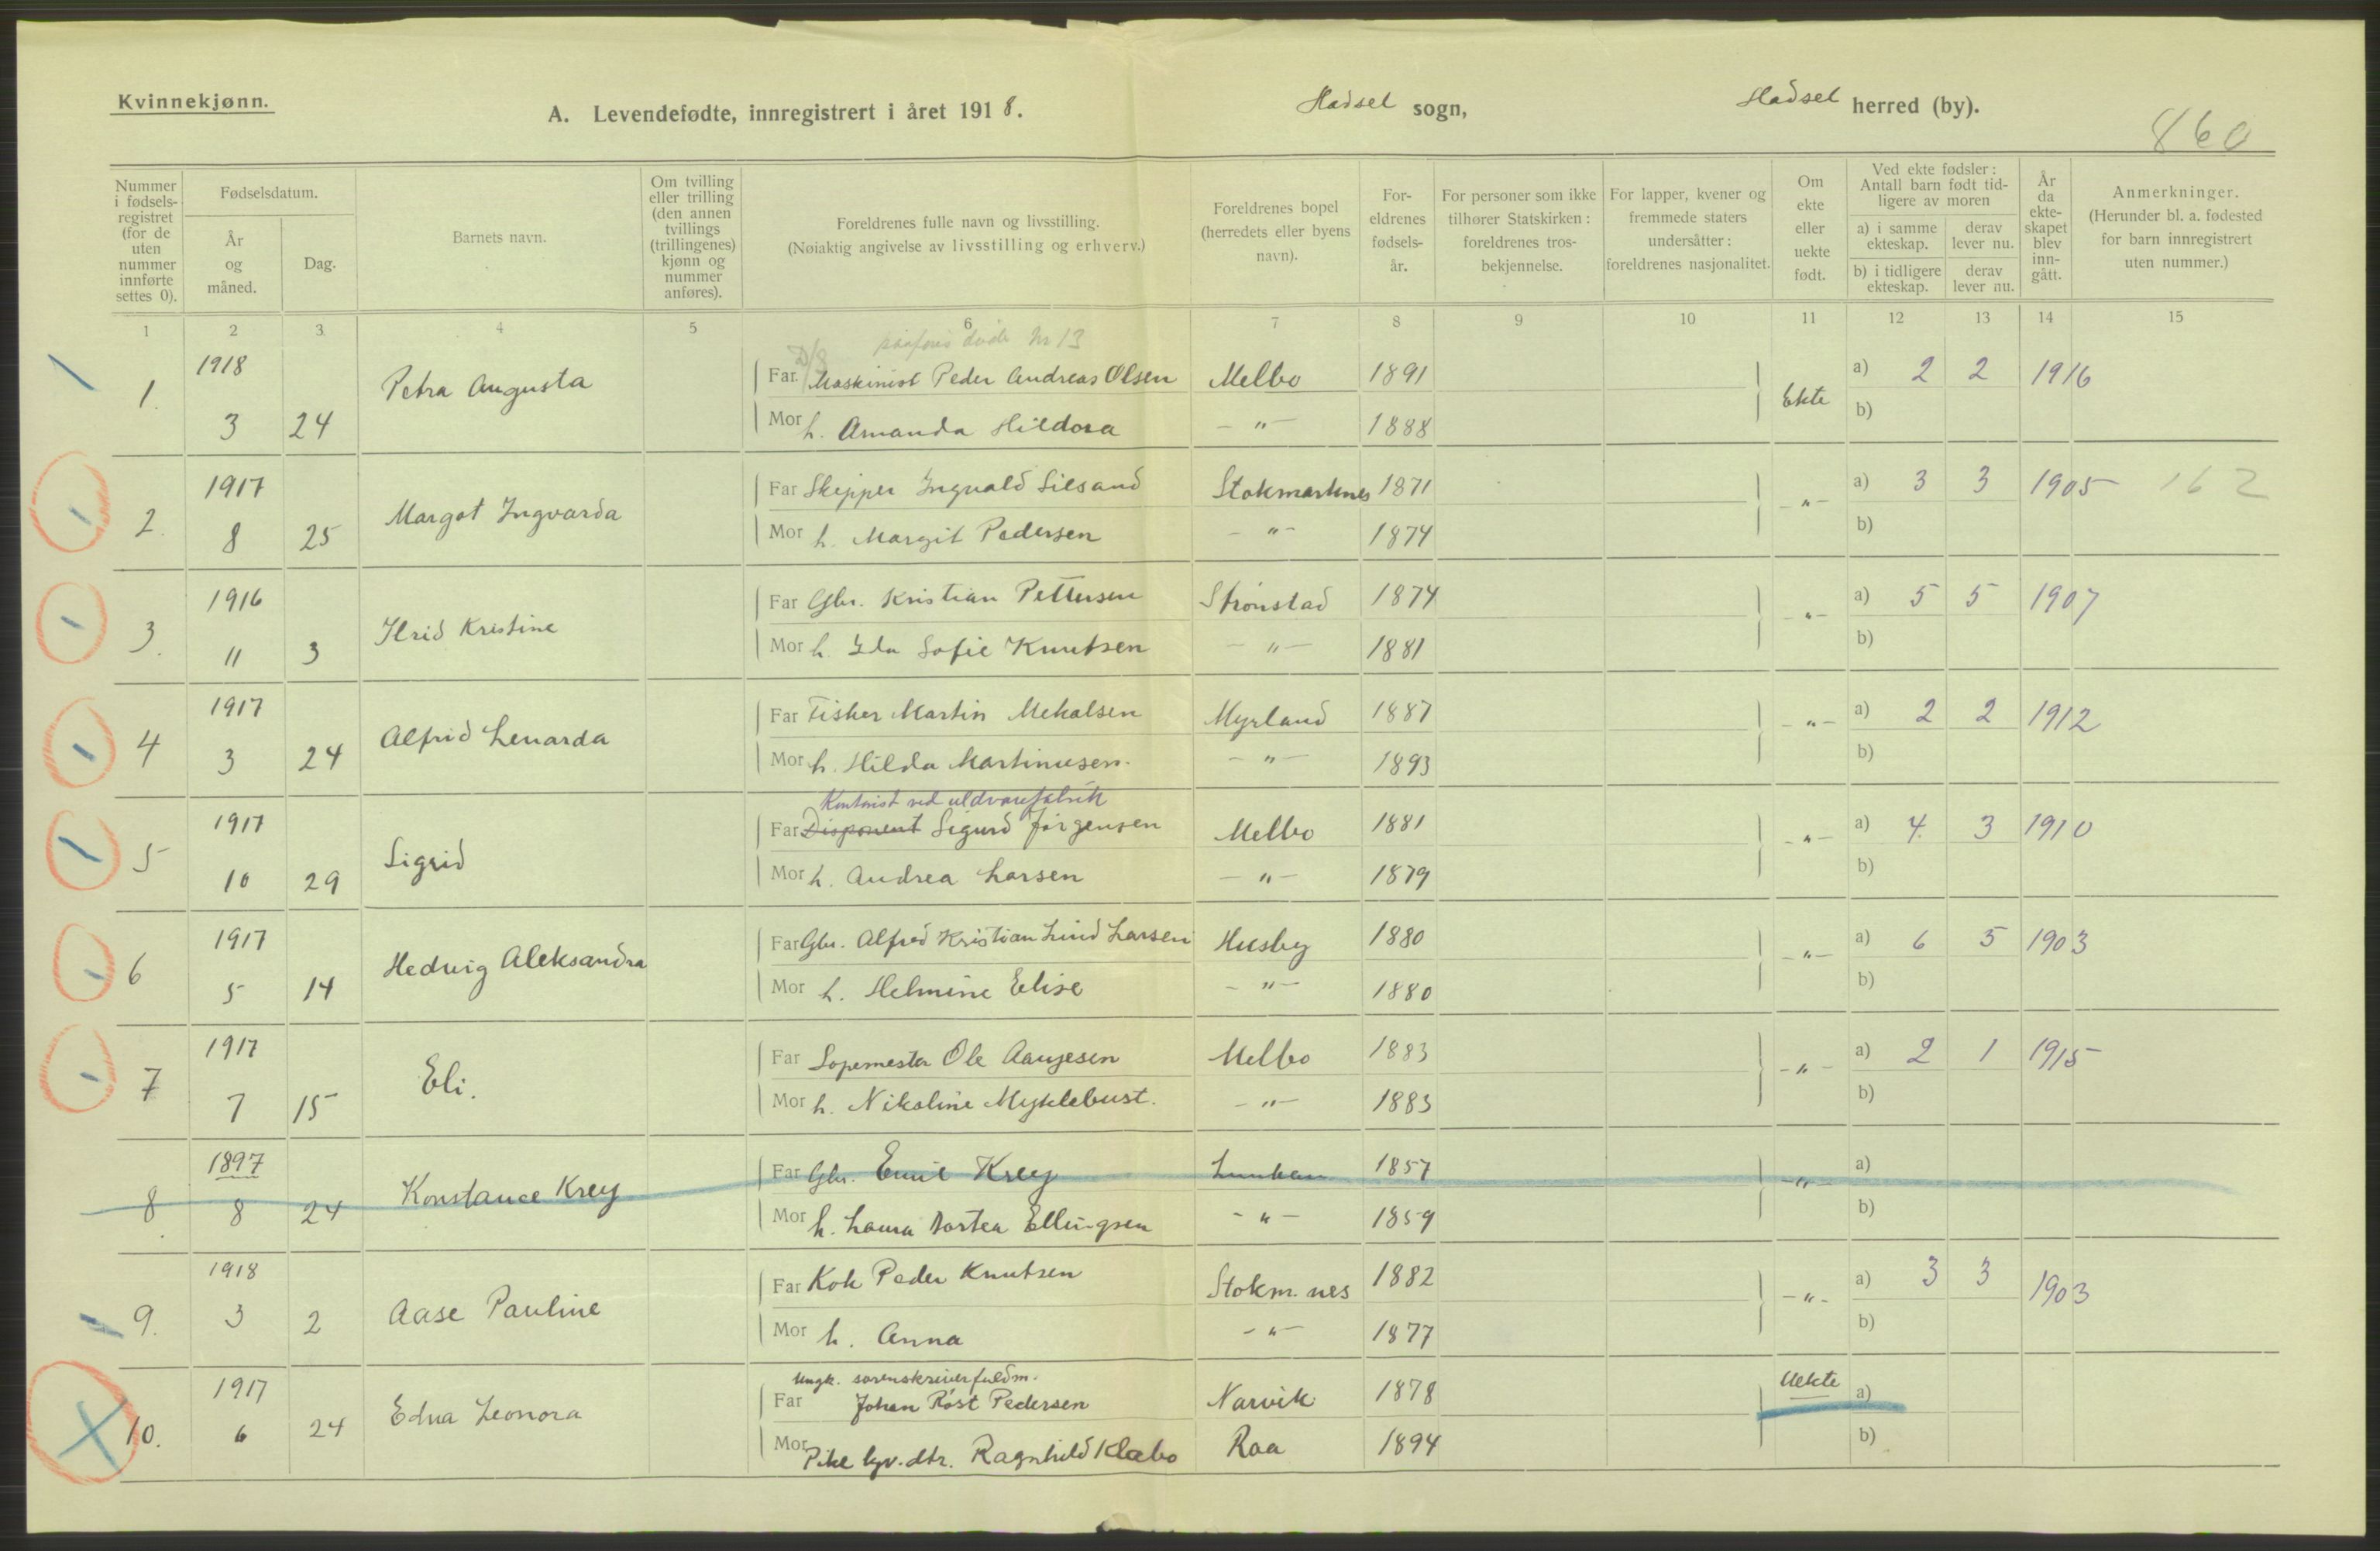 Kvinnekjønn.
A. Levendefødte, innregistrert i året 1918. Hadsel sogn, Hadsel herred (by).
860
Nummer i fødselsregistret (for de uten nummer innførte settes 0).
Fødselsdatum.
År og måned.
Dag.
Barnets navn.
Om tvilling eller trilling (den annen tvillings (trillingenes) kjønn og nummer anføres).
Foreldrenes fulle navn og livsstilling.
(Nøiaktig angivelse av livsstilling og erhverv.)
Foreldrenes bopel (herredets eller byens navn).
Foreldrenes fødselsår.
For personer som ikke tilhører Statskirken: foreldrenes trosbekjennelse.
For lapper, kvener og fremmede staters undersåtter: foreldrenes nasjonalitet.
Om ekte eller uekte født.
Ved ekte fødsler: Antall barn født tidligere av moren
a) i samme ekteskap.
derav lever nu.
b) i tidligere ekteskap.
derav lever nu.
År da ekteskapet blev inngått.
Anmerkninger.
(Herunder bl. a. fødested for barn innregistrert uten nummer.)
1 2 3 4 5 6 7 8 9 10 11 12 13 14 15
Nr 13
1 1. 1918 3 24 Petra Augusta
Far. Maskinist Peder Andreas Olsen Melbo 1891 Ekte a) 2 2 1916
Mor h. Amanda Hildora — " — 1888 b)
1 2. 1917 8 25 Margot Ingvarda
Far Skipper Ingvald Silsand Stokmarknes 1871 — " — a) 3 3 1905 162
Mor h. Margit Pedersen — " — 1874 b)
1 3. 1916 11 3 Ilrid Kristine
Far Gbr. Kristian Pettersen Strønstad 1874 — " — a) 5 5 1907
Mor h. Ida Sofie Knutsen — " — 1881 b)
1 4 1917 3 24 Alfrid Lenarda
Far Fisker Martin Mekalsen Myrland 1887 — " — a) 2 2 1912
Mor h. Hilda Martinusen. — " — 1893 b)
Kontorist ved uldvarefabrik
1 5 1917 10 29 Sigrid
Far Disponent Sigurd Jørgensen Melbo 1881 — " — a) 4 3 1910
Mor h. Andrea Larsen — " — 1879 b)
1 6 1917 5 14 Hedvig Aleksandra
Far Gbr. Alfred Kristian Lind Larsen Husby 1880 — " — a) 6 5 1903
Mor h. Helmine Elise — " — 1880 b)
1 7 1917 7 15 Eli.
Far Ole Aanjesen Melbo 1883 — " — a) 2 1 1915
Mor h. Nikoline Myklebust. — " — 1883 b)
8 1897 8 24 Konstance Krey
Far Gbr. Emil Krey 1857 — " — a)
Mor h. Laura Dortea Ellingsen — " — 1859 b)
1 9. 1918 3 2 Aase Pauline
Far Kok Peder Knutsen Stokm.nes 1882 — " — a) 3 3 1903
Mor h. Anna — " — 1877 b)
Ungk. sorenskriverfuldm.
10. 1917 6 24 Edna Leonora
Far Johan Röst Pedersen Narvik 1878 Uekte a)
Mor Pike Ragnhild Klæbo Raa 1894 b)